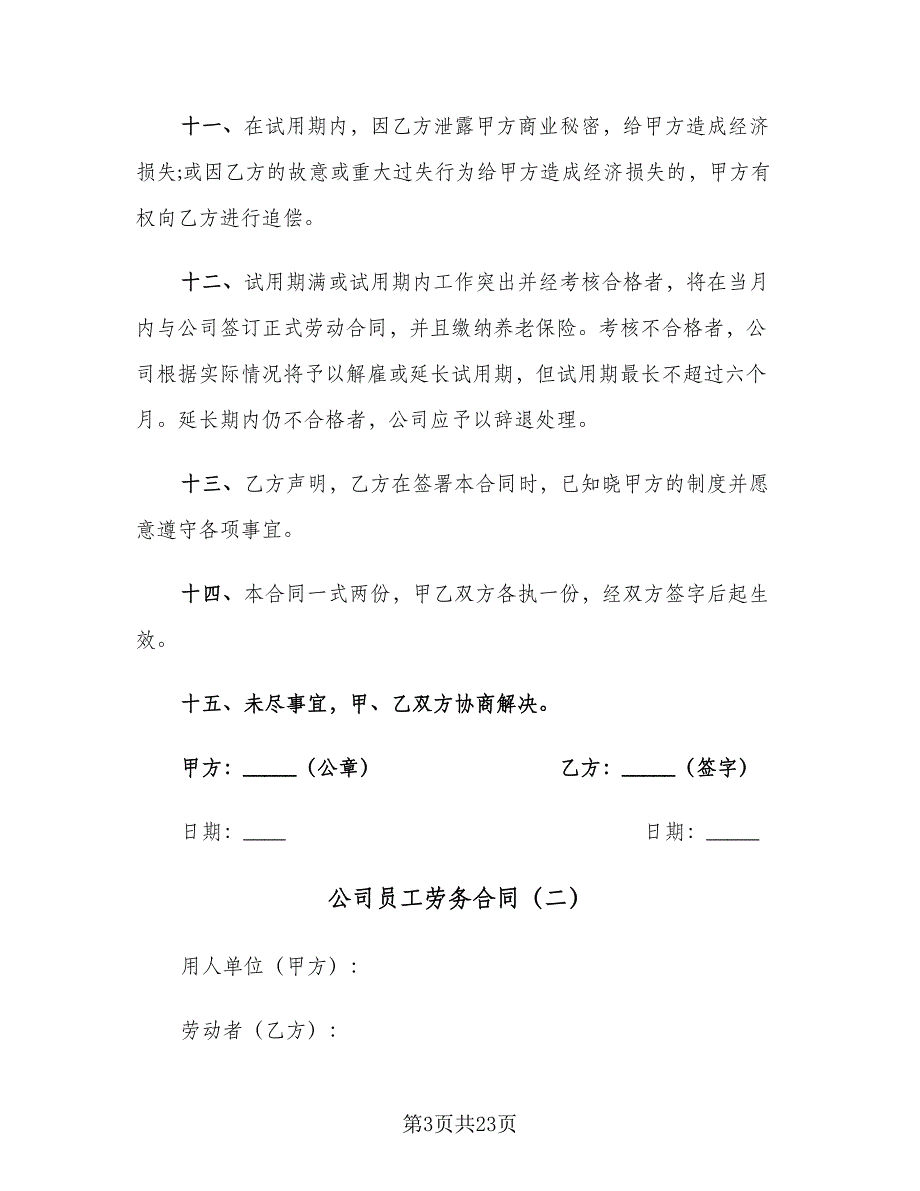 十一、在试用期内，因乙方泄露甲方商业秘密，给甲方造成经济
损失;或因乙方的故意或重大过失行为给甲方造成经济损失的，甲方有
权向乙方进行追偿。
十二、试用期满或试用期内工作突出并经考核合格者，将在当月
内与公司签订正式劳动合同，并且缴纳养老保险。考核不合格者，公
司根据实际情况将予以解雇或延长试用期，但试用期最长不超过六个
月。延长期内仍不合格者，公司应予以辞退处理。
十三、乙方声明，乙方在签署本合同时，已知晓甲方的制度并愿
意遵守各项事宜。
十四、本合同一式两份，甲乙双方各执一份，经双方签字后起生
效。
十五、未尽事宜，甲、乙双方协商解决。
甲方：_____（公章） 乙方：_____（签字）
日期：____ 日期：_____
公司员工劳务合同（二）
用人单位（甲方）：
劳动者（乙方）：
第3页共23页